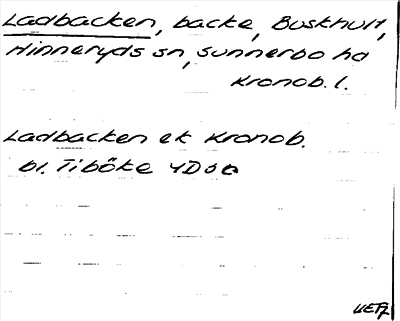 Ladbacken, backe, Buskhult,
Hinneryds sn, Sunnerbo hd
Kronob. l.
Ladbacken ek Kronob.
bl. Tiböke 4D0c